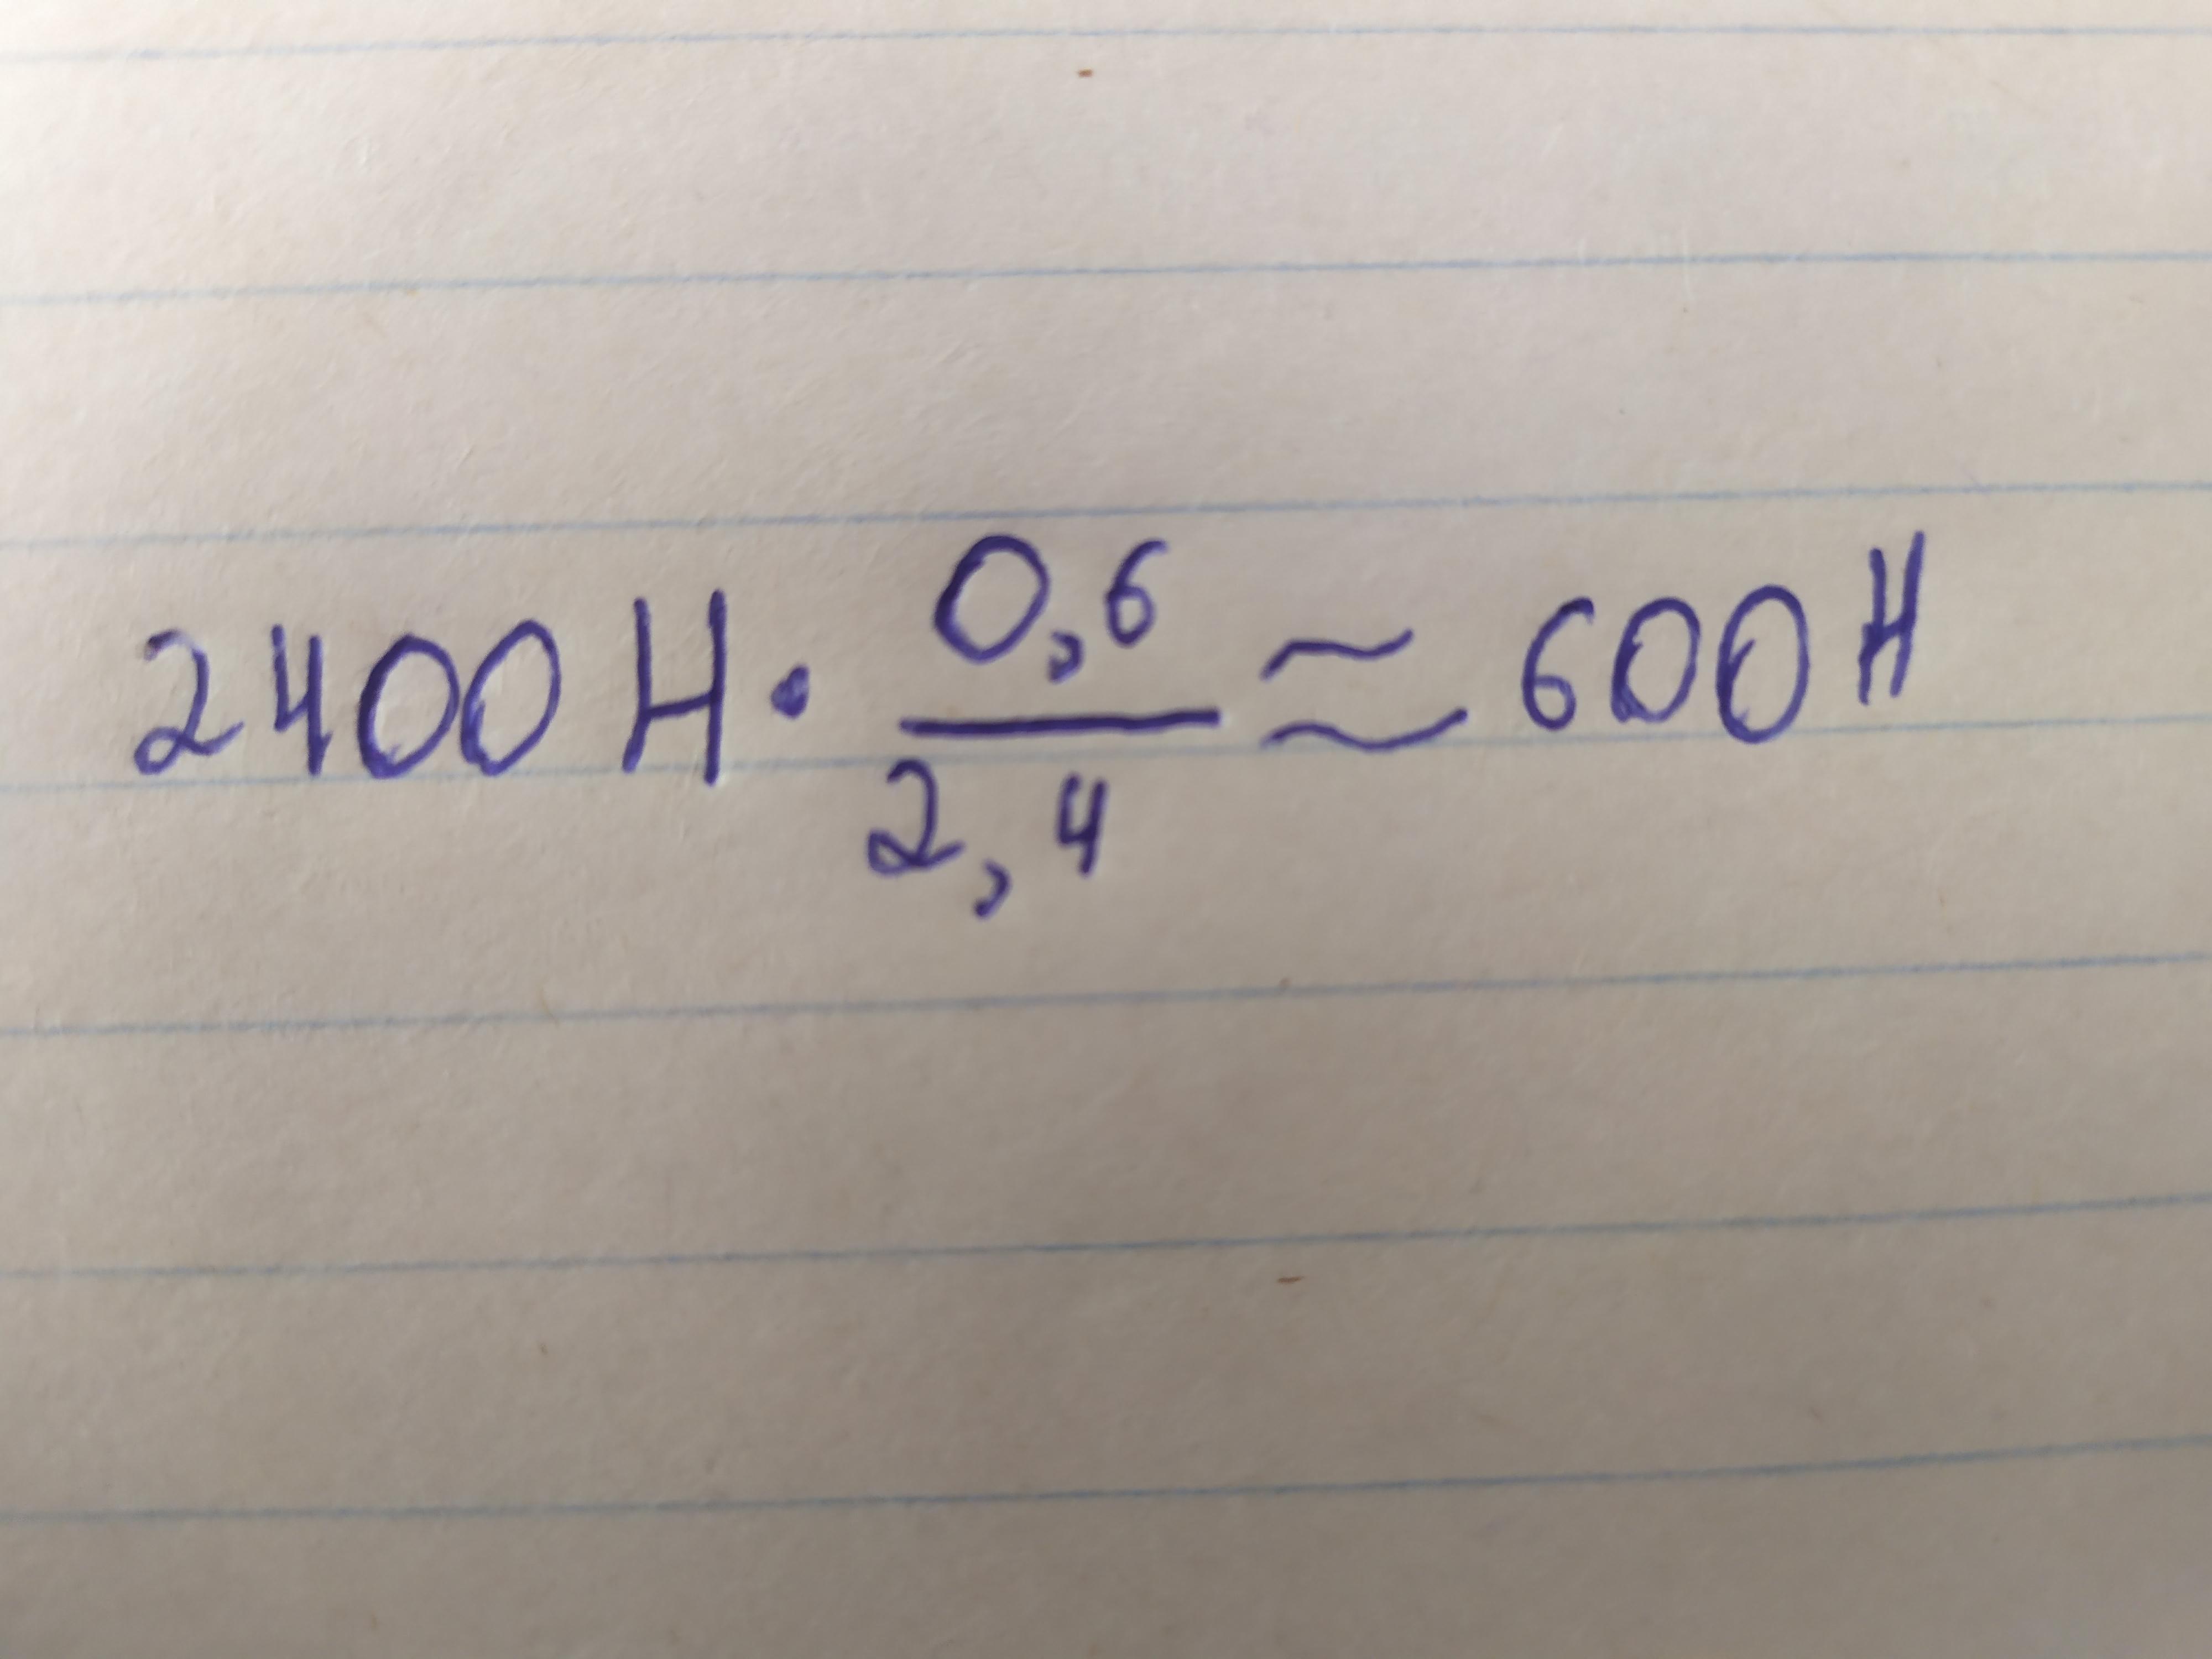 2400 Н · 0,6/2,4 ≈ 600 Н